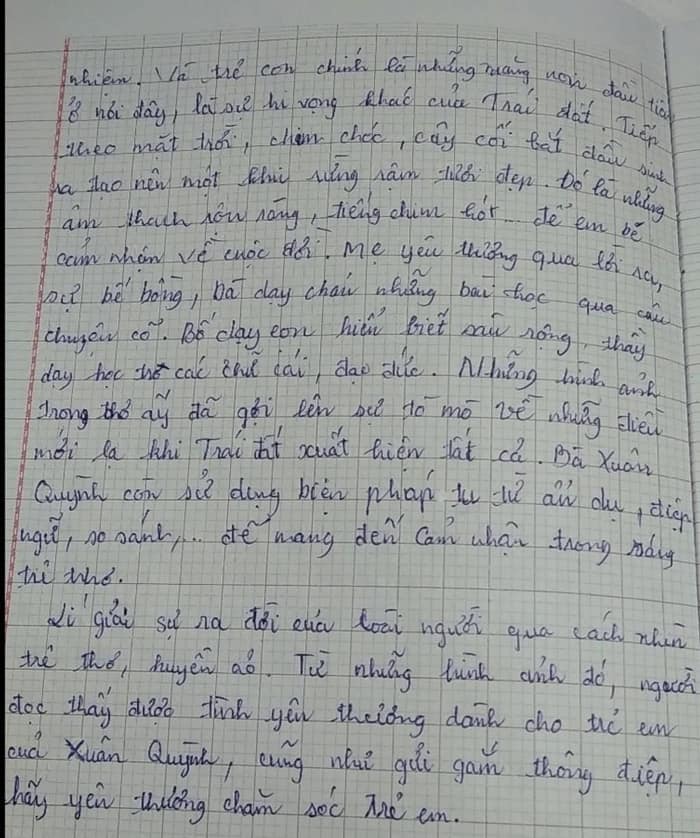 nhiên. Và trẻ con chính là những mang non đầu tiên
ở nơi đây, là sự hi vọng khác của Trái đất. Tiếp
theo mặt trời, chim chóc, cây cối bắt đầu sinh
ra tạo nên một khu rừng rậm tươi đẹp. Đó là những
âm thanh rôn ràng, tiếng chim hót... để em bé
cảm nhận về cuộc đời. Mẹ yêu thương qua lời ru,
sự bế bồng, bà dạy cháu những bài học qua câu
chuyện cổ. Bố dạy con hiểu biết sâu rộng, thầy
dạy học các chữ cái, đạo đức. Những hình ảnh
trong thơ ấy đã gợi lên sự tò mò về những điều
mới lạ khi Trái đất xuất hiện tất cả. Bà Xuân
Quỳnh còn sử dụng biện pháp tu từ ẩn dụ, điệp
ngữ, so sánh,... để mang đến cảm nhận trong sáng
trẻ thơ.
Lí giải sự ra đời của loài người qua cách nhìn
trẻ thơ, huyền ảo. Từ những hình ảnh đó, người
đọc thấy được tình yêu thương dành cho trẻ em
của Xuân Quỳnh, cũng như gửi gắm thông điệp,
hãy yêu thương chăm sóc trẻ em.